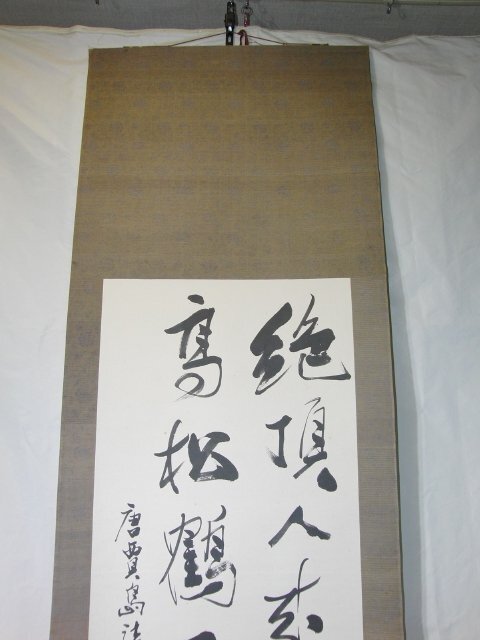 絶頂人来
高松鶴
唐賈島詩